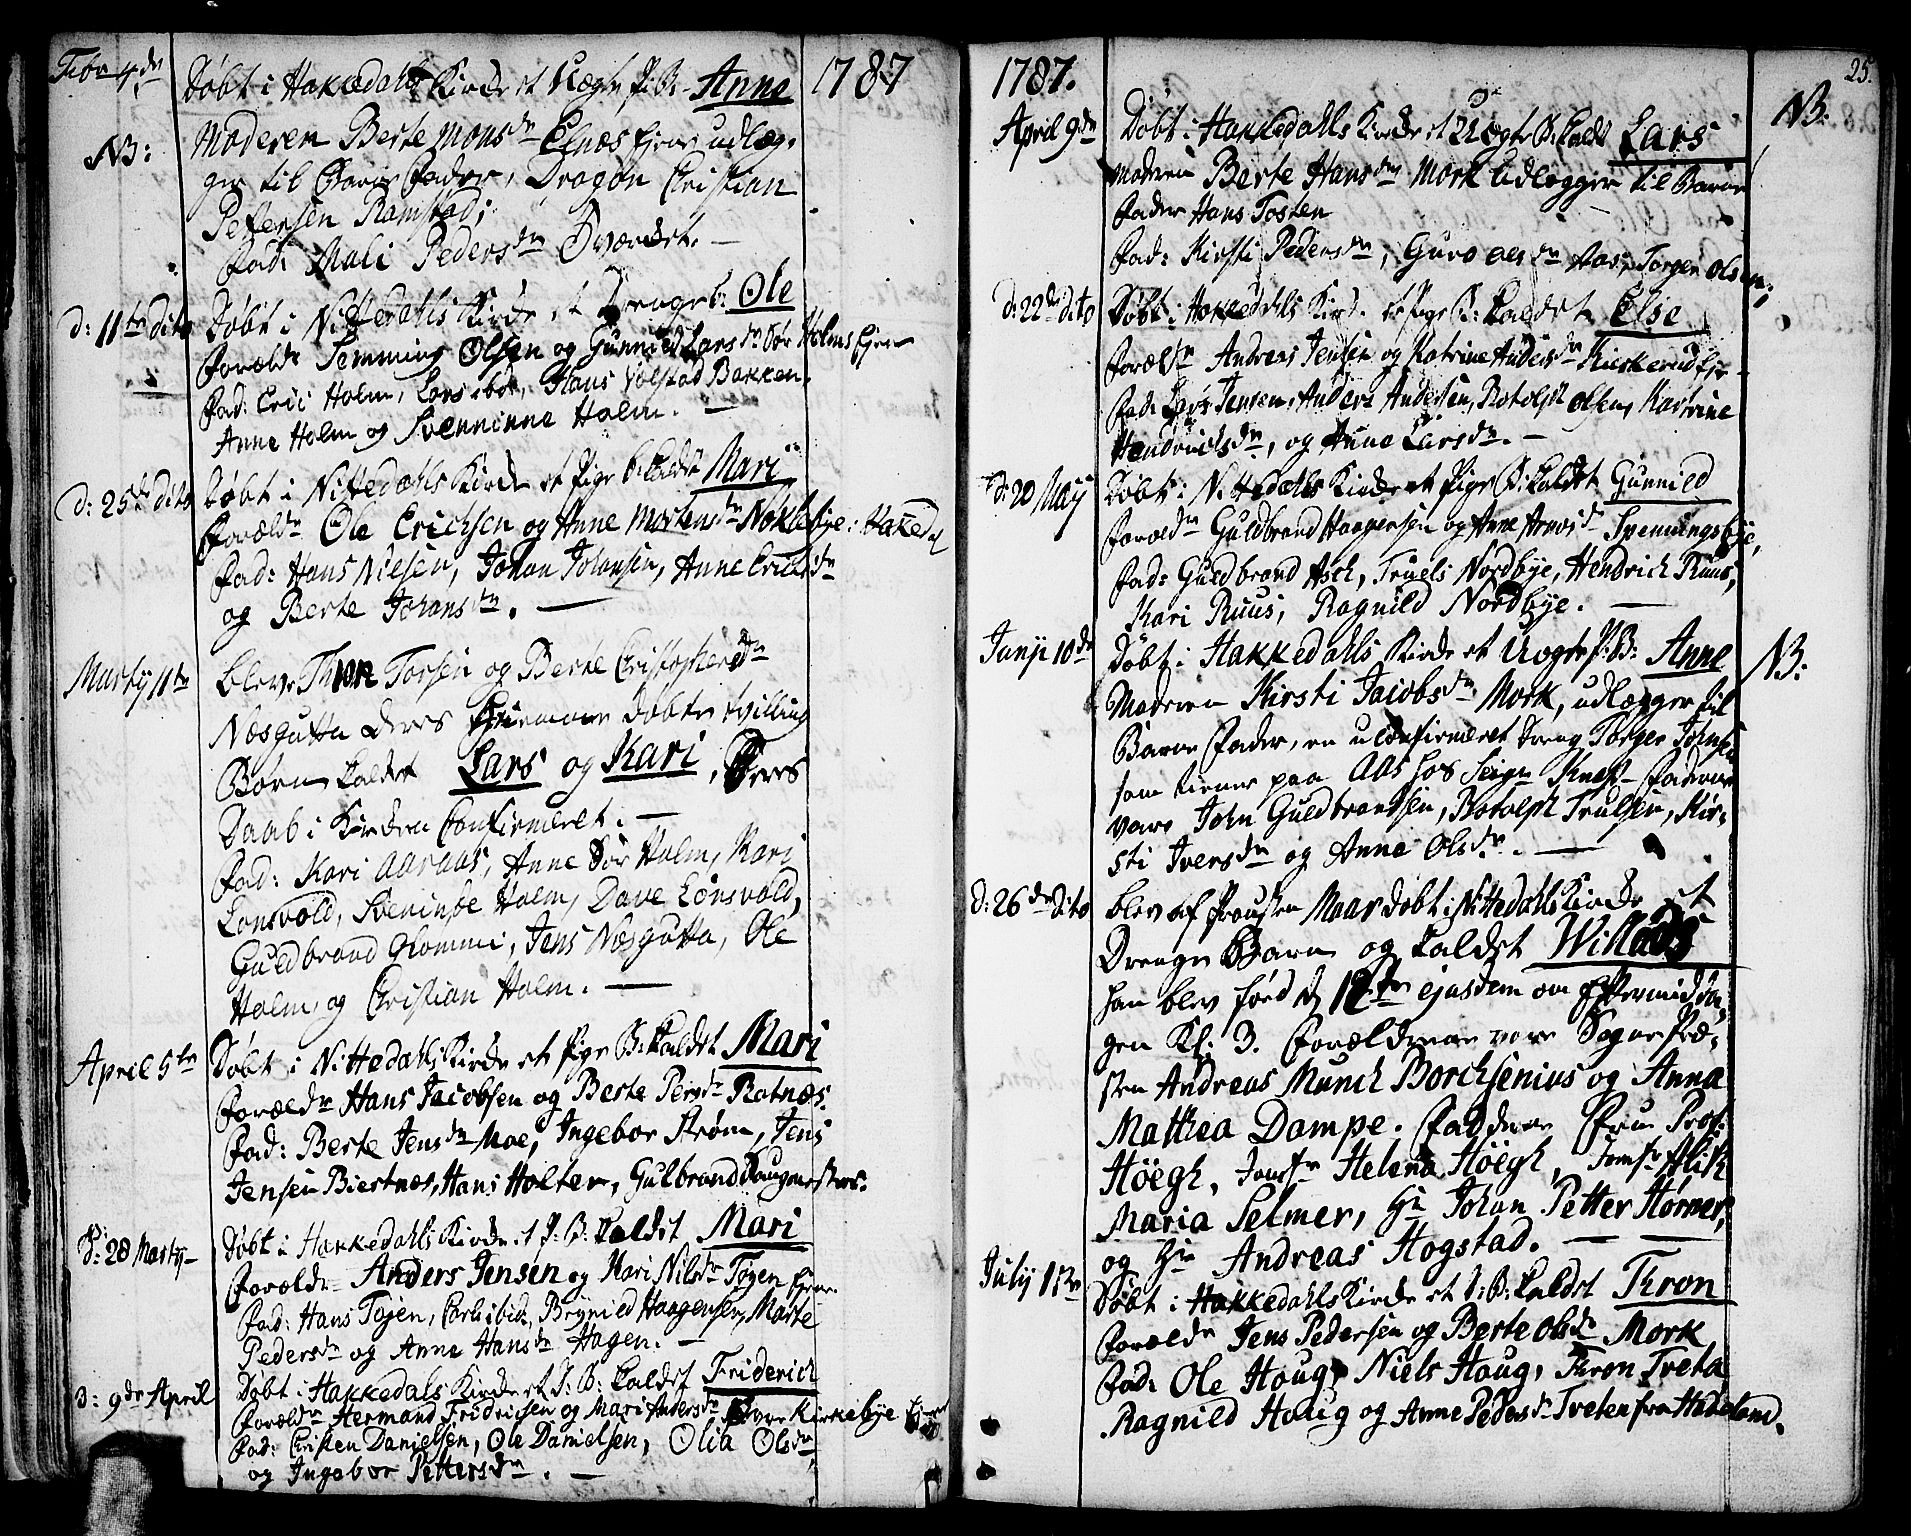 Febr 4de
1787
Døbt i Hakkedahls Kirke et Uægte P: B: Anne
NB: Moderen Berte Monsdr Elnes Ejer udlæg-
ger til Barne Fader, Dragon Christian
Pettersen Ramstad;
Fad: Mali Pedersdr Dværdst. —
d: 11te dito Døbt i Nittedahls Kirke et Drengeb: Ole
Forældr Temming Olsen og Gunnild Larsdr Sør Holms Ejer
Fad: Eric Holm, Lars ibd, Hans Volstad Bakken,
Anne Holm og Svenninne Holm. —
d: 25de dito Døbt i Nittedahls Kirke et Pige b: kaldt Mari
Forældr Ole Erichsen og Anne Mortensdr Noklebye: Hakedl
Fad: Hans Nielsen, Johan Johansen, Anne Ericsdr
og Berte Johansdr. —
Martij 11te bleve Thron Torsen og Berte Christophersdr
Næsgutta deres hiemme døbte tvilling
Børn kaldet Lars og Kari, Deres
Daab i Kirken Confirmeret. —
Fad: Kari Aaraas, Anne Sør Holm, Kari
Lonsvold, Sveninne Holm, Dave Lonsvold,
Guldbrand Glommi, Jens Næsgutta, Ole
Holm, og Christian Holm. —
April 5te Døbt i Nittedahls Kirke et Pige B: kaldet Mari
Forældr Hans Jacobsen og Berte Persdr Rotnæs.
Fad: Berte Jensdr Moe, Ingebor Strøm, Jens
Jensen Biertnæs, Hans Holter, Gulbrand Haugmesters.
D: 28 Martij Døbt i Hakkedahls Kirke et P: B: kaldet Mari
Forældr Anders Jensen og Kari Nilsdr Tøyen Ejer
Fad: Hans Tøjen, Carl ibid, Brynild Haagensen, Marte
Pedersdr og Anne Hansdr Hagen. —
d: 9de April Døbt i Hakkedals Kirke et D: B: kaldet Friderich
Forældr Hermand Fridrichsen og Mari Andersdr Kirkebye Ejer
Fad: Christen Danielsen, Ole Danielsen, Olia Olsdr
og Ingebor Pettersdr. —
25.
1787.
April 9de Døbt i Hakkedahls Kirke et Uægte B: kaldt Lars NB:
Moderen Berte Hansdr Mork udlægger til Barne
Fader Hans Tosten
Fad: Kirsti Pedersdr, Guro Olsdr Aas, Torgen Olsen;
d: 22de dito Døbt i Hakkedahls Kirk. et Pige B: kaldet Else
Forældr Andreas Jensen og Katrine Andersdr Kirkerud Ejer
Fad: Lars Jensen, Anders Andersen, Botolph Olsen, Kattrine
Hendrichsdr, og Anne Larsdr. —
d: 20 Maij Døbt i Nittedahls Kirke et Pige B: kaldet Gunnild
Forældr Guldbrand Haagensen og Anne Arnesdr Spenningsbye,
Fad: Guldbrand Asch, Truels Nordbye, Hendrich Ruus,
Kari Ruus, Ragnild Nordbye. —
Junji 10de Døbt i Hakkedahls Kirke et Uægte P: B: Anne NB:
Moderen Kirsti Jacobsdr Mork, udlægger til
Barne Fader, en uconfirmeret Dreng Torger Johnsen
som tiener paa Aas hos Seigr Knof — Fadderne
vare John Guldbrandsen, Botolph Trulsen, Kir-
sti Iversdr og Anne Olsdr. —
d: 26de dito blev af Provsten Maar døbt i Nittedahls Kirke et
Drenge Barn og kaldet Willads
han blev fød d 12te ejusdem om Eftermidda-
gen Kl: 3. Forældrene vare Sogne Præ-
sten Andreas Munch Borchsenius og Anna
Mathea Dampe. Fadderne Frue Prof:
Höegh, Jomfr Helena Höegh, Jomfr Alith
Maria Selmer, Hr Johan Petter Hørner,
og Hr Andreas Hogstad. —
July 15de Døbt i Hakkedahls Kirke et D: B: kaldet Thron
Forældr Jens Pedersen og Berte Olsdr Mork
Fad: Ole Haug, Niels Haug, Thron Tveta
Ragnild Haug og Anne Pedersdr Tveten fra Hadeland.